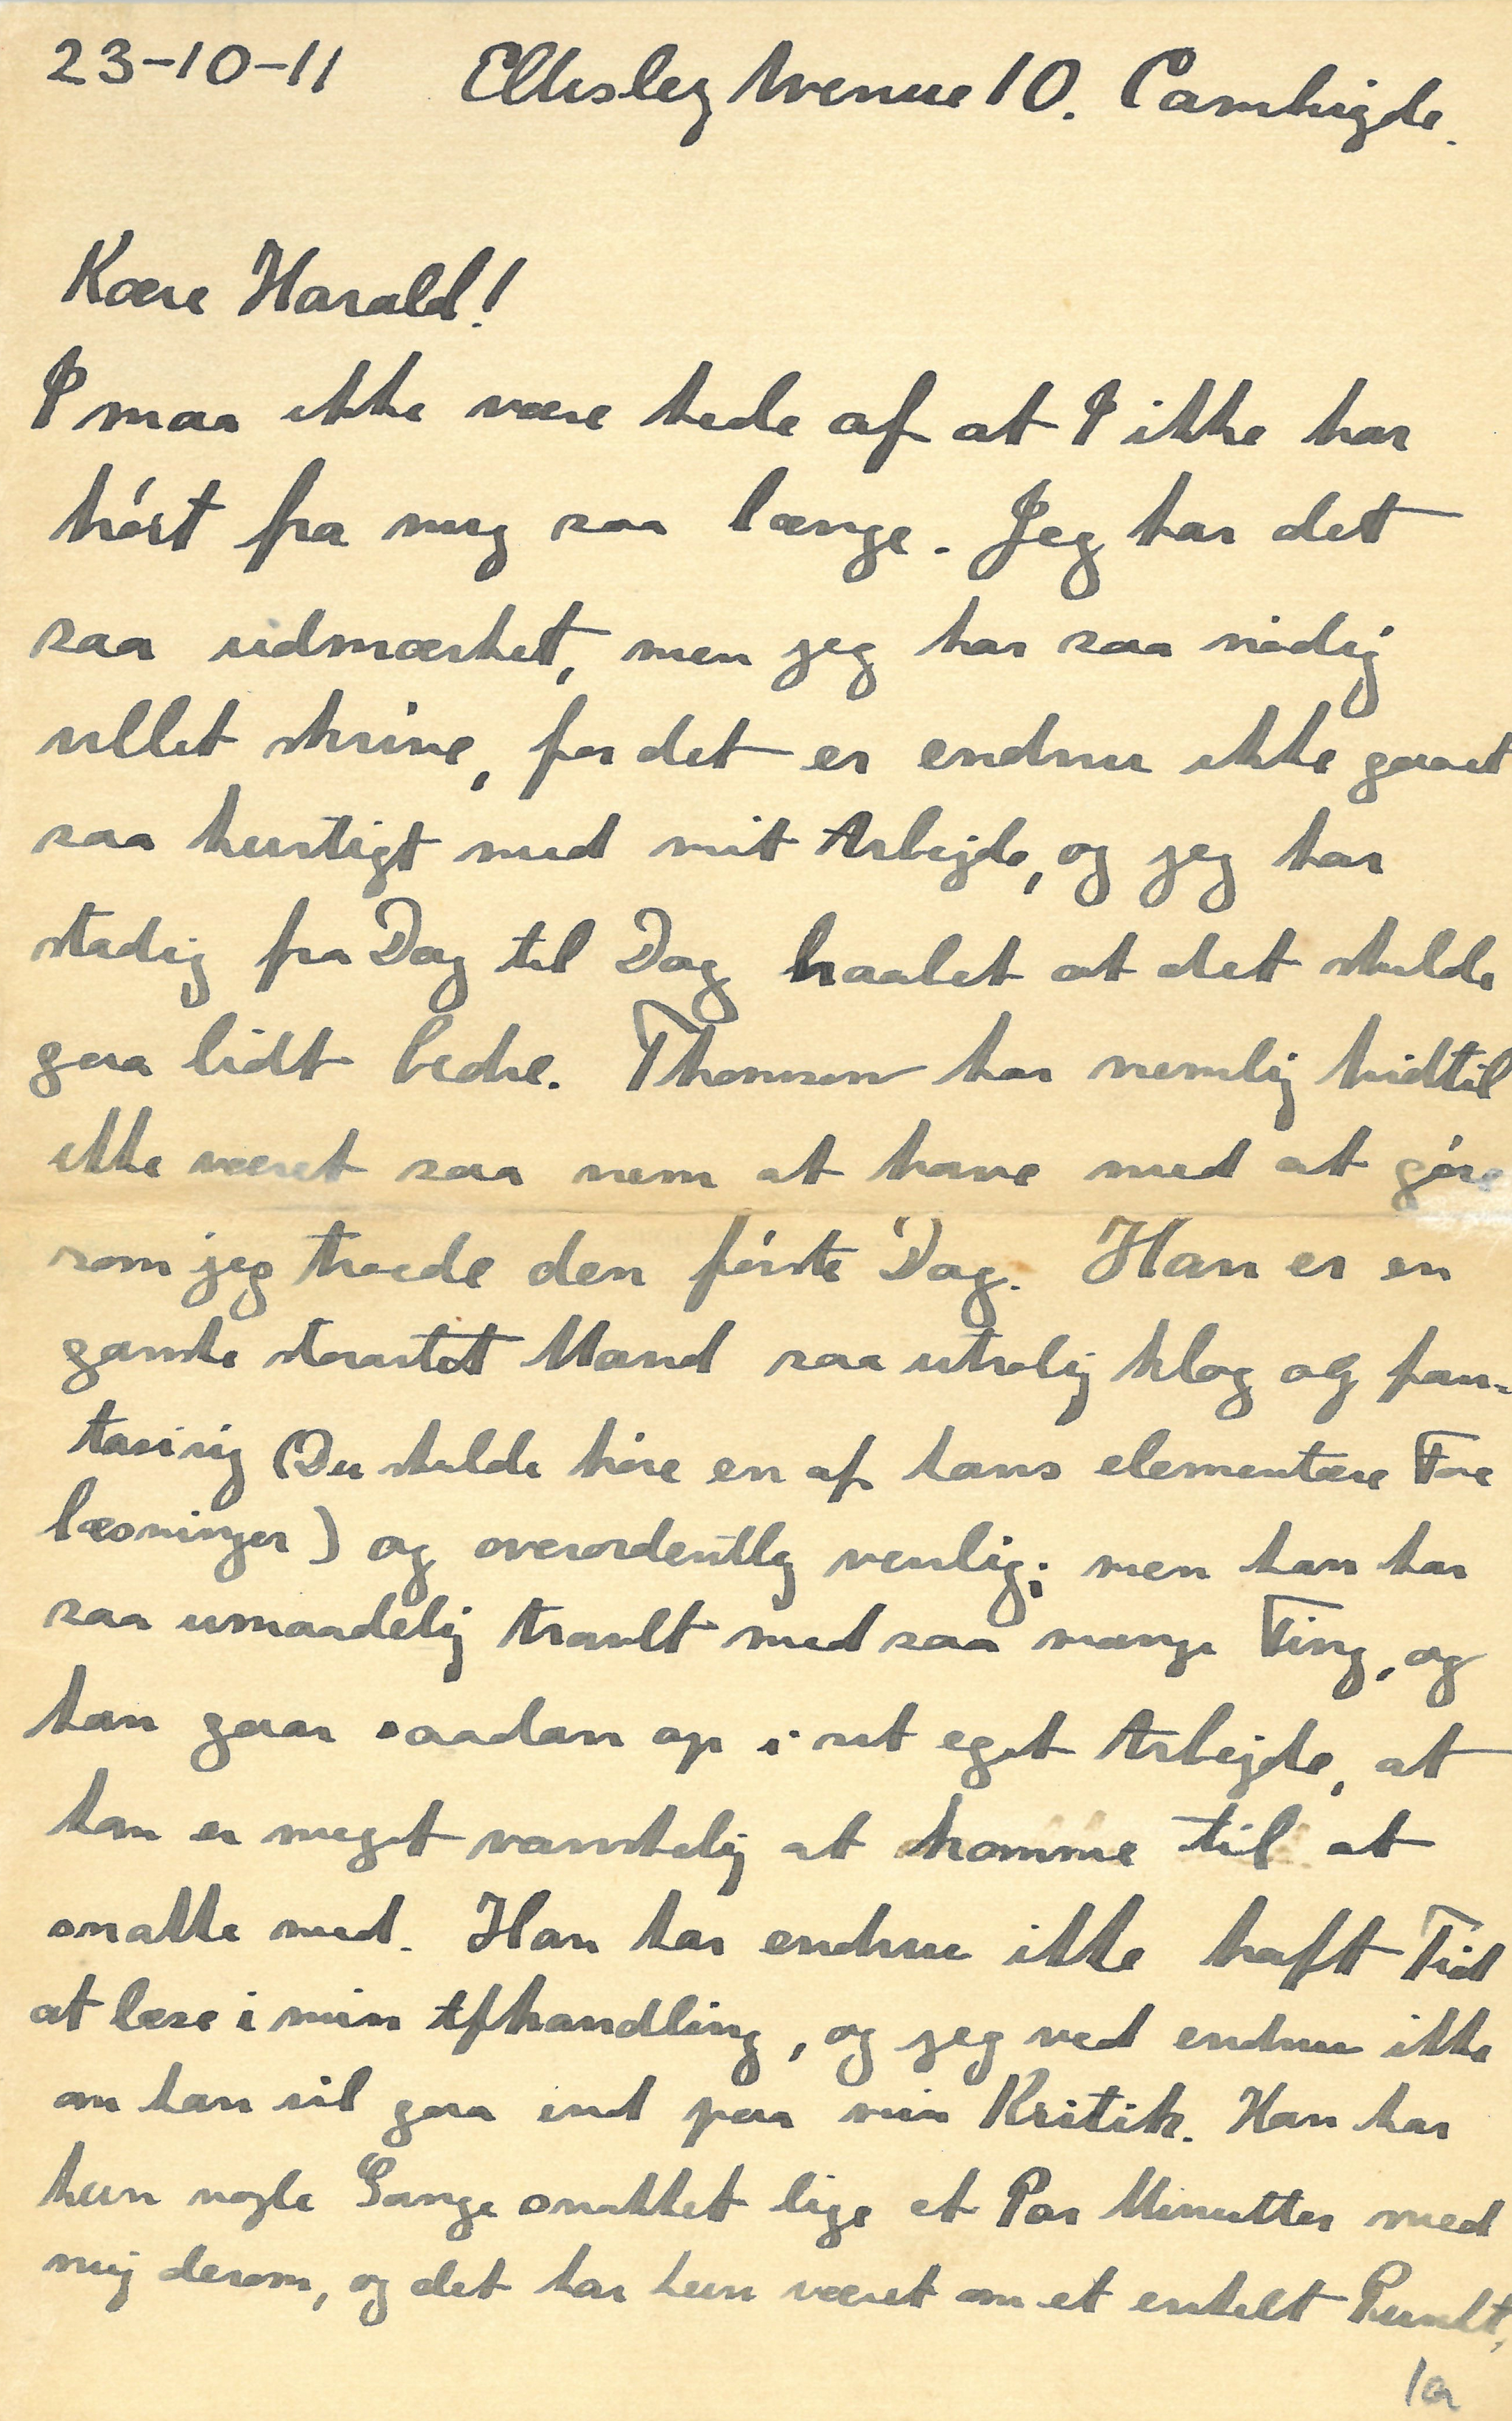 23-10-11 Eltisley Avenue 10. Cambrigde.
Kære Harald!
I maa ikke være kede af at I ikke har
hørt fra mig saa længe. Jeg har det
saa udmærket, men jeg har saa nødig
villet skrive, for det er endnu ikke gaaet
saa hurtigt med mit Arbejde, og jeg har
stadig fra Dag til Dag haabet at det skulde
gaa lidt bedre. Thomson har nemlig hidtil
ikke været saa nem at have med at gøre
som jeg troede den første Dag. Han er en
ganske storartet Mand saa utrolig klog og fan-
tasirig (Du skulde høre en af hans elementære Fore
læsninger) og overordentlig venlig; men han har
saa umaadelig travlt med saa mange Ting, og
han gaar saadan op i sit eget Arbejde, at
han er meget vanskelig at komme til at
snakke med. Han har endnu ikke haft Tid
at læse i min Afhandling, og jeg ved endnu ikke
om han vil gaa ind paa min Kritik. Han har
kun nogle Gange snakket lige et Par Minutter med
mig derom, og det har kun været om et enkelt Punkt,
1a